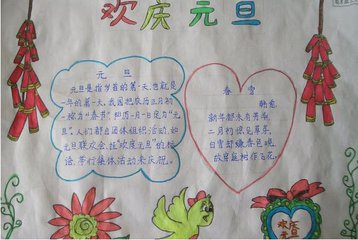 欢庆元旦
元 旦
元旦是指岁首的第一天,也就是
一年的第一天。我国把农历正月初
一称为“春节”,把历一月一日定为“元
旦”。人们都会团体组织活动,如
元旦联欢会,挂“欢度元旦”的标
语,举行集体活动来庆祝。
春 雪
韩愈
新年都未有芳华,
二月初惊见草芽。
白雪却嫌春色晚,
故穿庭树作飞花。
欢度
元旦